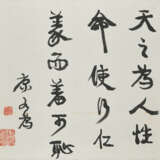 天之為人性
命使行仁
義而羞可恥
康有為